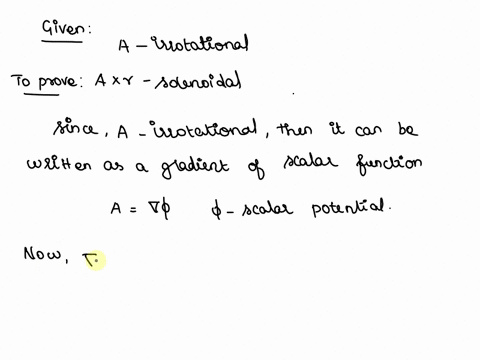 Given:
A - irrotational
To prove: A × r - solenoidal
Since, A - irrotational, then it can be
written as a gradient of scalar function
A = ∇ϕ ϕ - scalar potential.
Now, ∇.